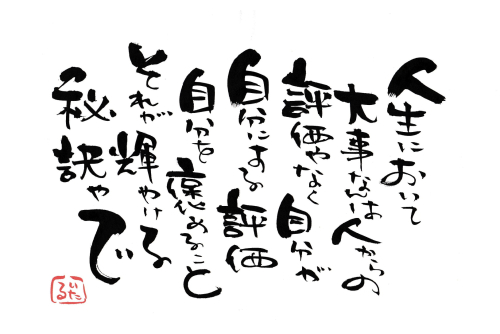 人生において
大事なんは人からの
評価やなく自分が
自分にする評価
自分を褒めること
それが輝やける
秘訣やで